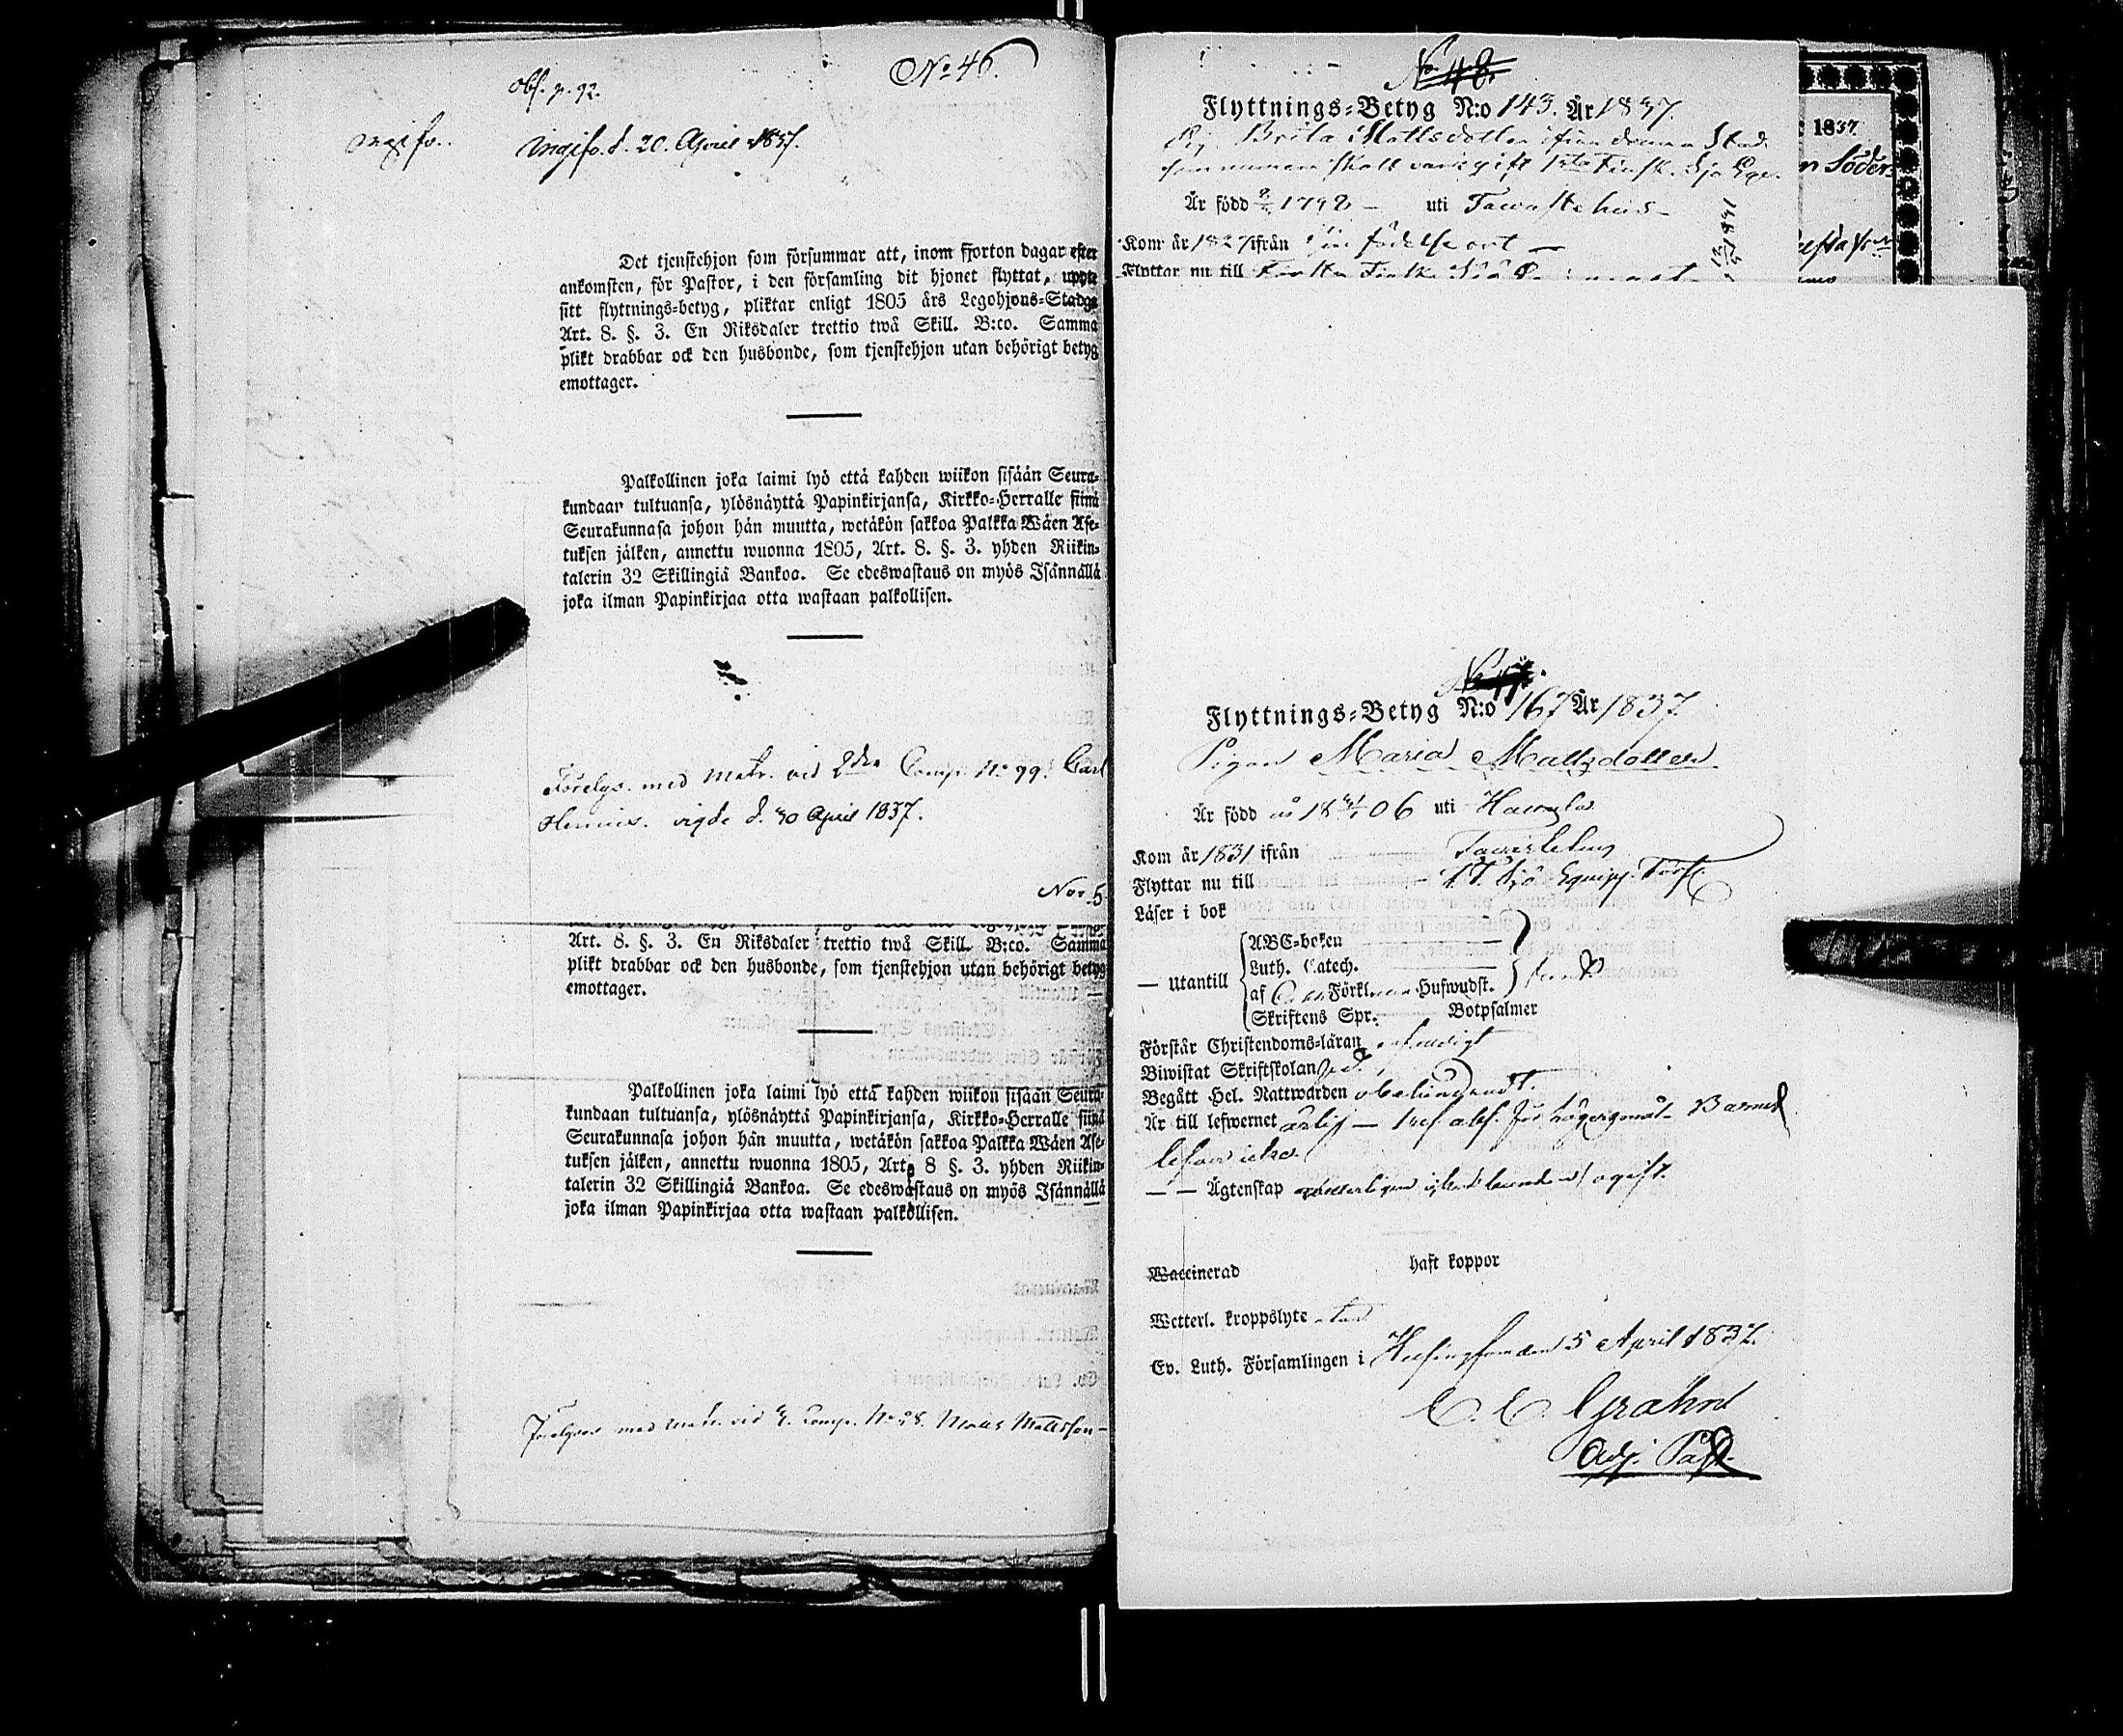 No 46.
obs. p. 92.
Ingifv. d. 20. April 1837.
Det tjenstehjon som försummar att, inom fjorton dagar efter
ankomsten, för Pastor, i den församling dit hjonet flyttat, uppte
sitt flyttnings-betyg, pliktar enligt 1805 års Legohjons-Stadga
Art. 8. §. 3. En Riksdaler trettio twå Skill. B:co. Samma
plikt drabbar ock den husbonde, som tjenstehjon utan behörigt betyg
emottager.
Palkollinen joka laimi lyö että kahden wiikon sisään Seura-
kundaan tultuansa, ylösnäyttä Papinkirjansa, Kirkko-Herralle siinä
Seurakunnasa johon hän muutta, wetäkön sakkoa Palkka Wäen Ase-
tuksen jälken, annettu wuonna 1805, Art. 8. §. 3. yhden Riikin-
talerin 32 Skillingiä Bankoa. Se edeswastaus on myös Isännällä
joka ilman Papinkirjaa otta wastaan palkollisen.
med Matr. vid 2dra Comp. No 99. Carl
vigde d. 30 April 1837.
Art. 8. §. 3. En Riksdaler trettio twå Skill. B:co. Samma
plikt drabbar ock den husbonde, som tjenstehjon utan behörigt betyg
emottager.
Palkollinen joka laimi lyö että kahden wiikon sisään Seura-
kundaan tultuansa, ylösnäyttä Papinkirjansa, Kirkko-Herralle siinä
Seurakunnasa johon hän muutta, wetäkön sakkoa Palkka Wäen Ase-
tuksen jälken, annettu wuonna 1805, Art. 8 §. 3. yhden Riikin-
talerin 32 Skillingiä Bankoa. Se edeswastaus on myös Isännällä
joka ilman Papinkirjaa otta wastaan palkollisen.
med Matr. vid Comp. No 28. Mattsson
No 48.
Flyttnings-Betyg N:o 143. År 1837.
Brita Mattsdotter ifrån denna Stad
som numera skall vara gift 1sta Finsk. Sjö Eqe.
Är född 1798 uti Tawastehus
Kom år 1827 ifrån sin födelse ort
Flyttar nu till Första Finska Sjö
1837
n Söder-
Flyttnings-Betyg N:o 167 År 1837.
Pigan Maria Mattsdotter
Är född 1806 uti
Kom år 1831 ifrån
Flyttar nu till Sjö Equip. Förs.
Läser i bok
— utantill
ABC-boken
Luth. Catech.
af Förkl. Hufwudst.
Skriftens Spr. Botpsalmer
Förstår Christendoms-läran
Biwistat Skriftskolan
Begått Hel. Nattwarden
Är till lefwernet ärlig — för lägersmål. Barnet
lefver icke.
— — Ägtenskap ogift.
Waccinerad haft koppor
Wetterl. kroppslyte utan
Ev. Luth. Församlingen i Helsingfors den 5 April 1837.
C. C. Grahn
Adj. Past.